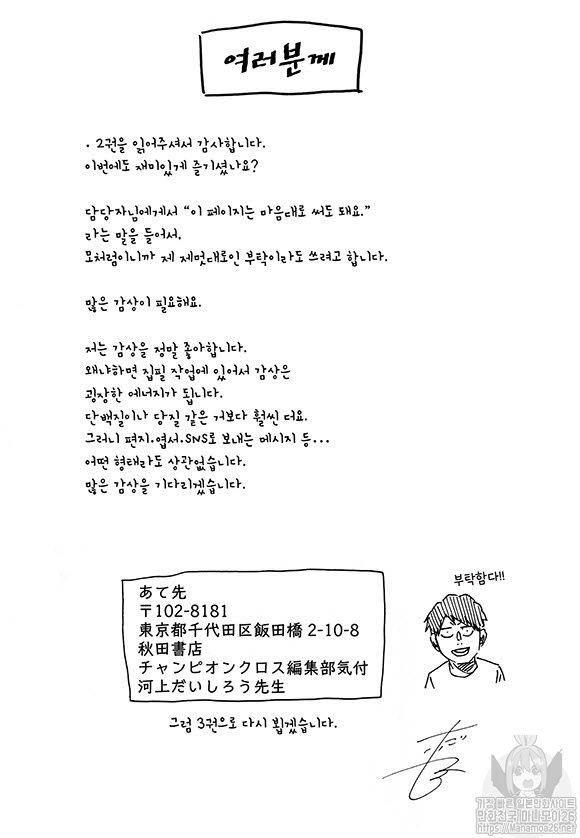 여러분께
· 2권을 읽어주셔서 감사합니다.
이번에도 재미있게 즐기셨나요?
담당자님에게서 “이 페이지는 마음대로 써도 돼요.”
라는 말을 들어서,
모처럼이니까 제 제멋대로인 부탁이라도 쓰려고 합니다.
많은 감상이 필요해요.
저는 감상을 정말 좋아합니다.
왜냐하면 집필 작업에 있어서 감상은
굉장한 에너지가 됩니다.
단백질이나 당질 같은 거보다 훨씬 더요.
그러니 편지·엽서·SNS로 보내는 메시지 등...
어떤 형태라도 상관없습니다.
많은 감상을 기다리겠습니다.
부탁함다!!
あて先
〒102-8181
東京都千代田区飯田橋 2-10-8
秋田書店
チャンピオンクロス編集部気付
河上だいしろう先生
그럼 3권으로 다시 뵙겠습니다.
가장 빠른 일본만화사이트
만화천국 마나모아26
https://Manamoa26.net